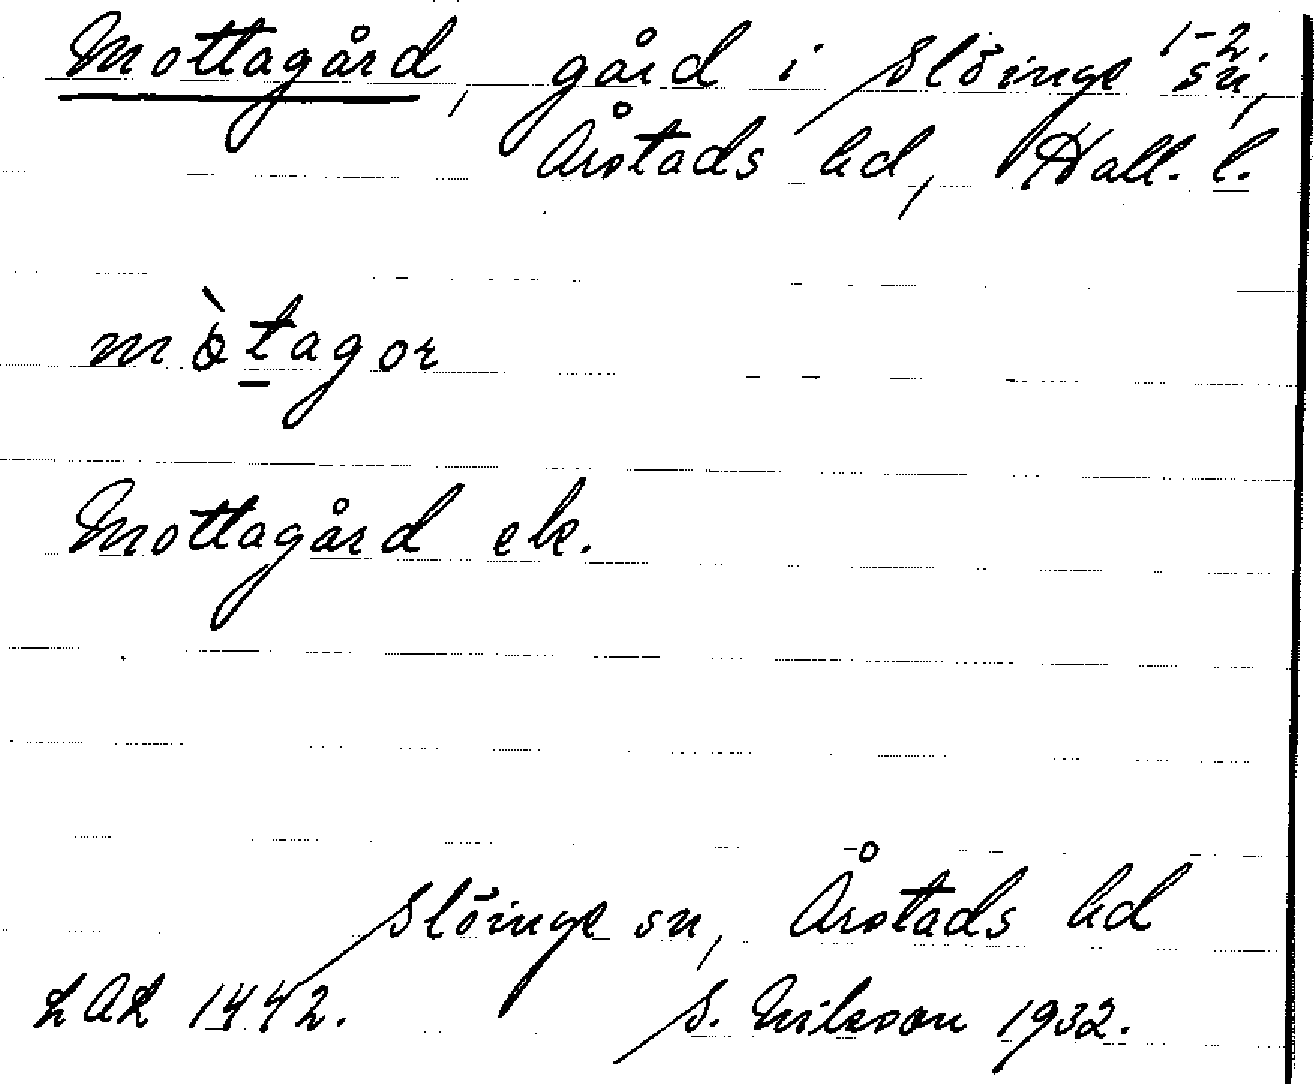 Mottagård, gård i Slöinge sn, 1-2.
Årstads hd, Hall. l.
mòtagor
Mottagård ek.
Slöinge sn, Årstads hd
LAL 1442. S. Nilsson 1932.